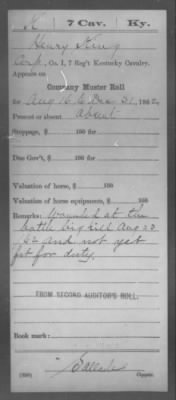 K | 7 Cav. | Ky.
Henry King
Corp, Co. I, 7 Reg't Kentucky Cavalry.
Appears on
Company Muster Roll
for Aug 16 to Dec 31, 1862.
Present or absent absent
Stoppage, $ 100 for
Due Gov't, $ 100 for
Valuation of horse, $ 100
Valuation of horse equipments, $ 100
Remarks: Wounded at the
battle big hill Aug 23
62 and not yet
fit for duty.
FROM SECOND AUDITOR'S ROLL.
Book mark:
(358) Copyist.